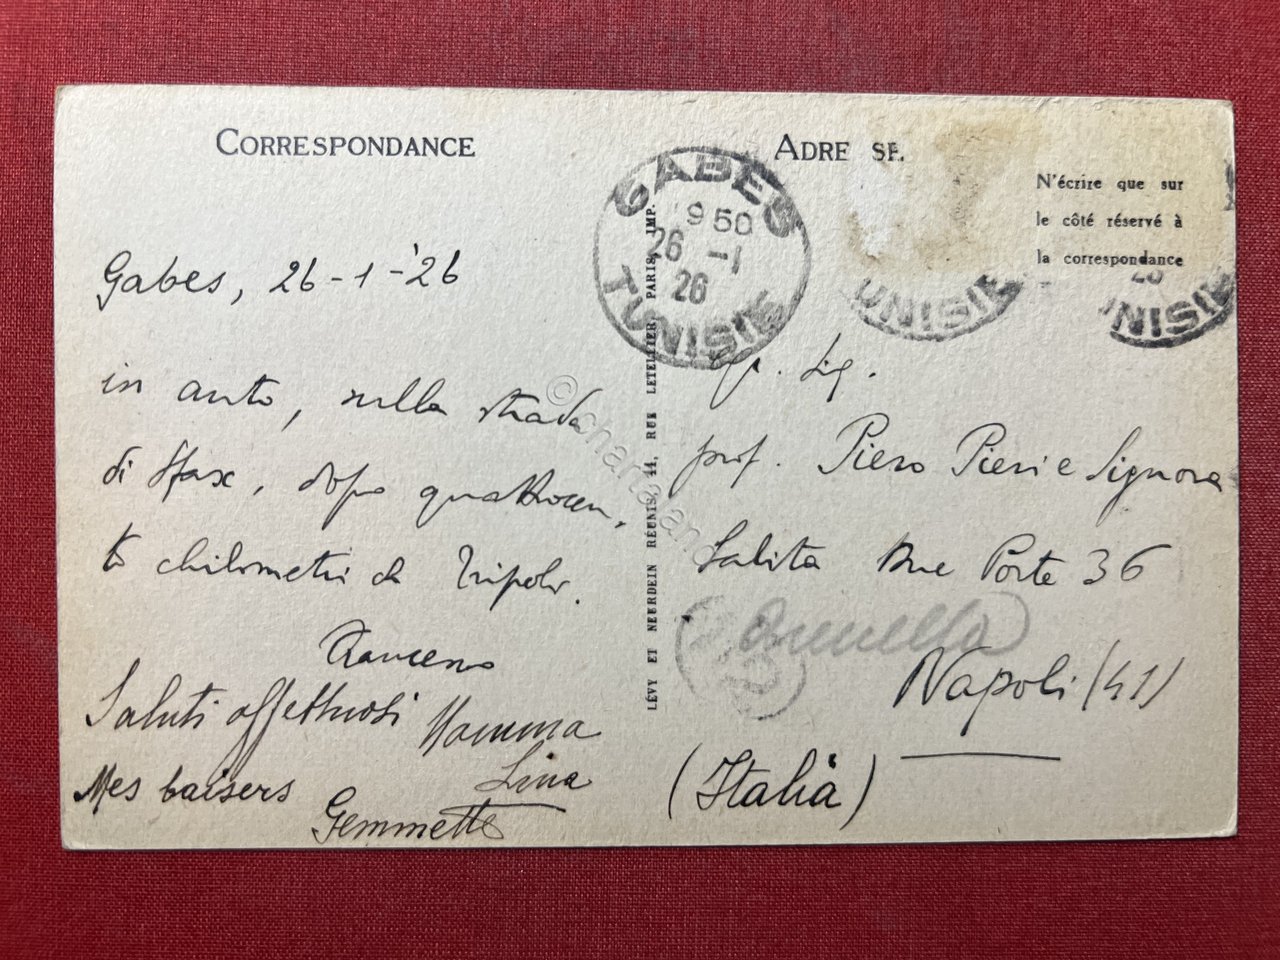 CORRESPONDANCE
ADRESSE
N'écrire que sur
le côté réservé à
la correspondance
GABES
9 50
26 -1
26
TUNISIE
TUNISIE
TUNISIE
LÉVY ET NEURDEIN RÉUNIS, 44, RUE LETELLIER, PARIS, IMP.
Gabes, 26-1-'26
in auto, sulla strada
di Sfax, dopo quattrocen,
to chilometri da Tripoli.
Saluti affettuosi Mamma
Lina
Mes baisers
Gemmette
Sig.
prof. Piero Pieri e Signora
Salita Due Porte 36
Napoli (41)
(Italia)
© chartaland